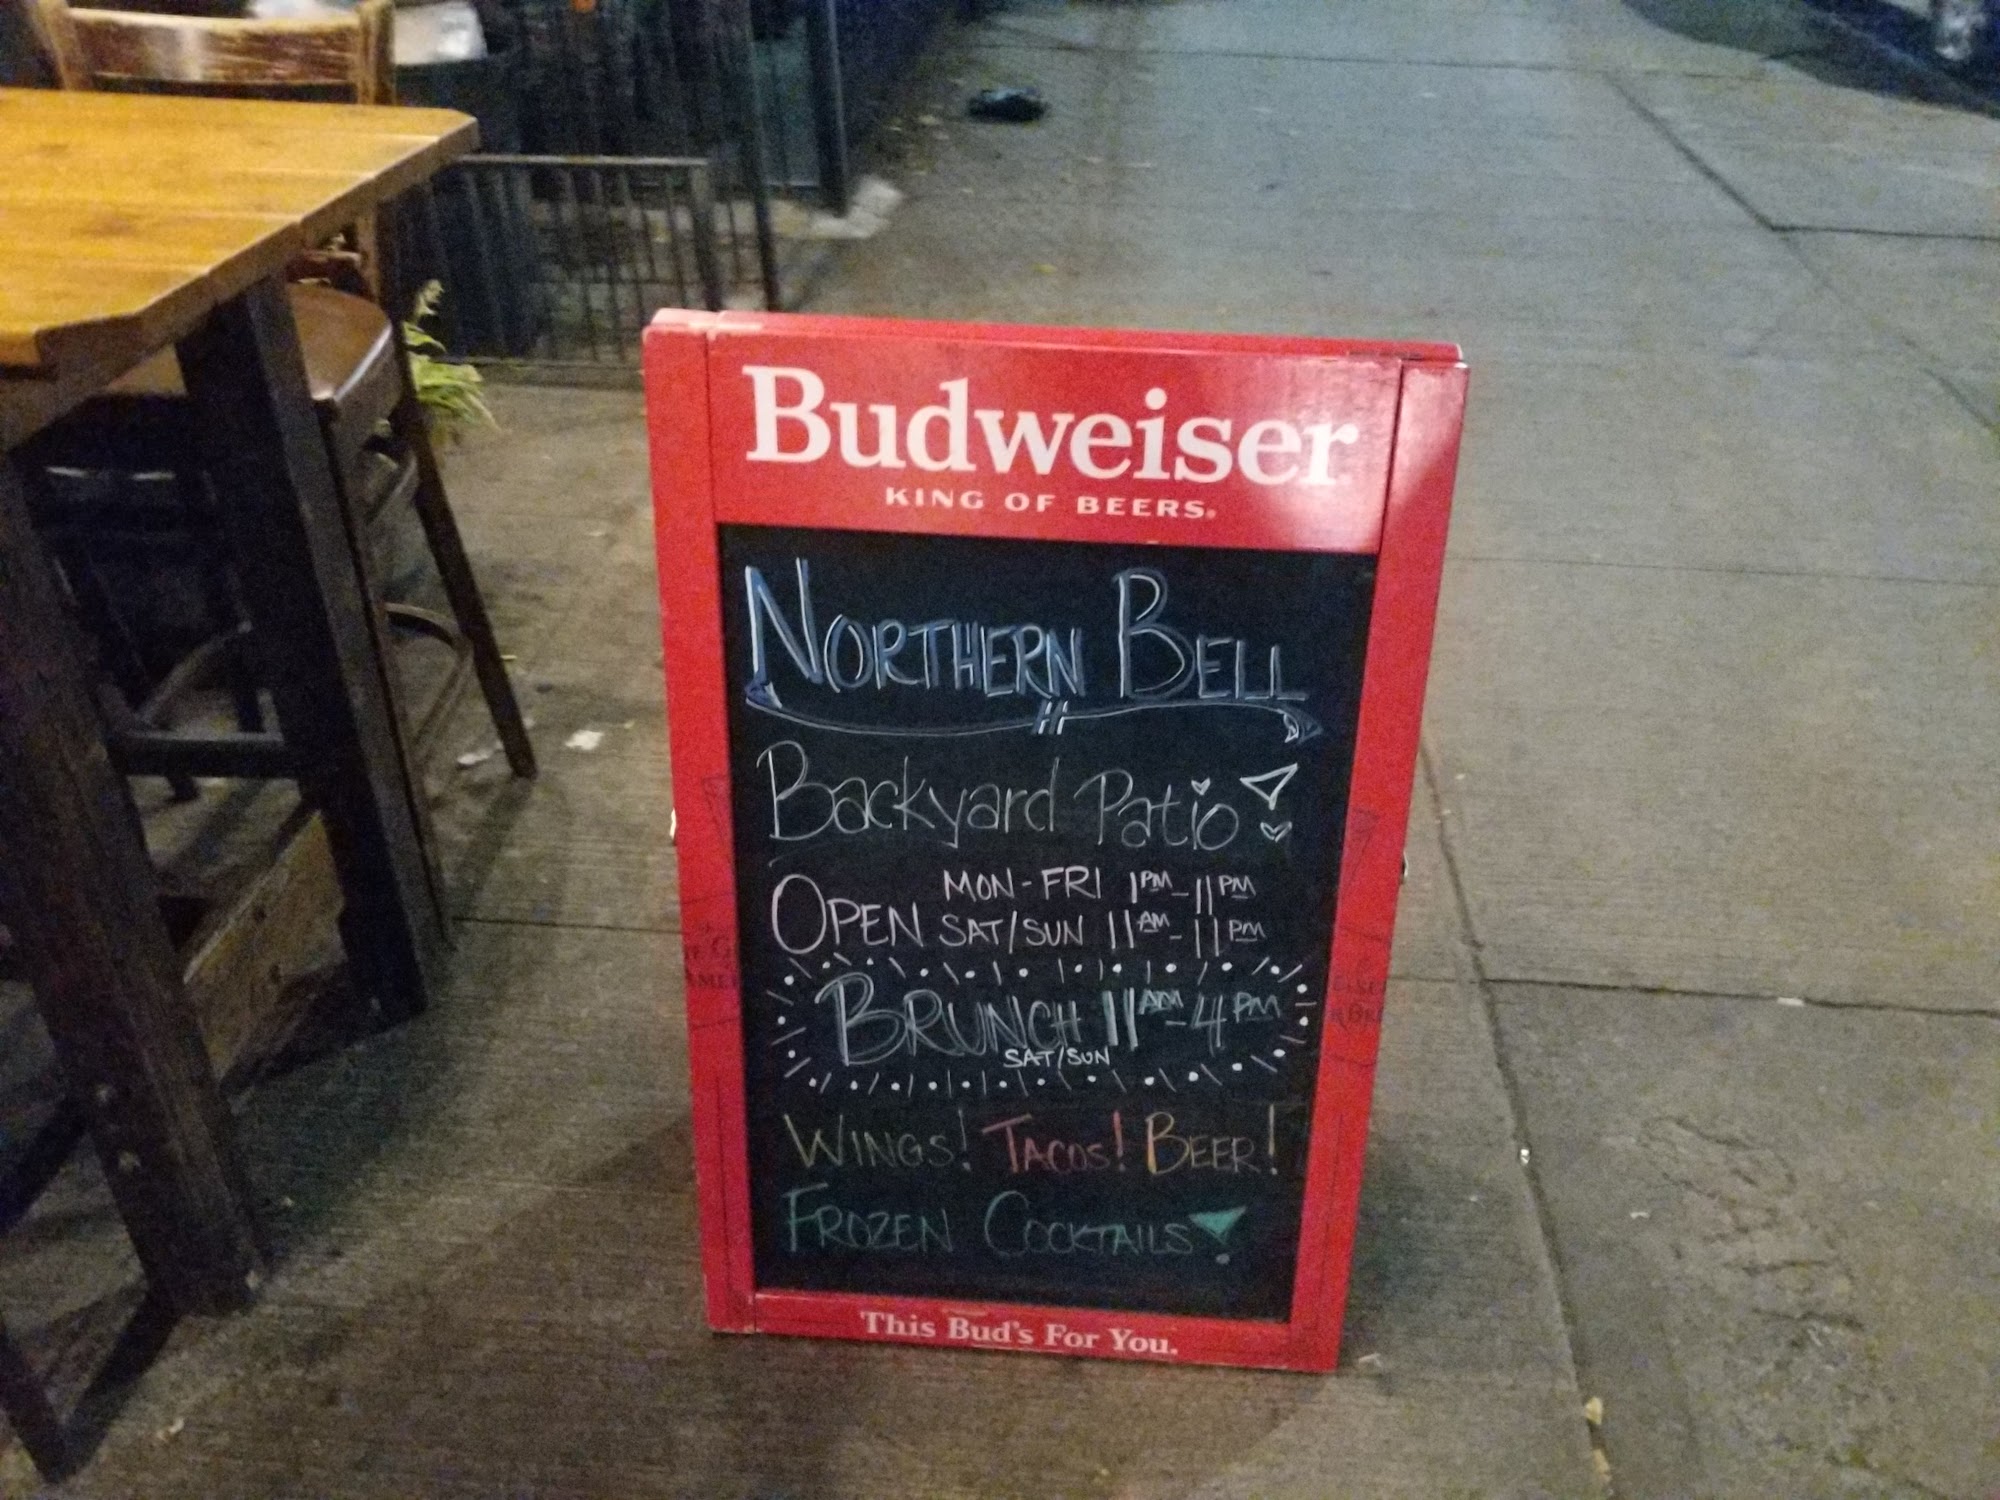 Budweiser
KING OF BEERS.
NORTHERN BELL
Backyard Patio
OPEN MON-FRI 1PM-11PM
SAT/SUN 11AM-11PM
BRUNCH 11AM-4PM
SAT/SUN
WINGS! TACOS! BEER!
FROZEN COCKTAILS
This Bud's For You.